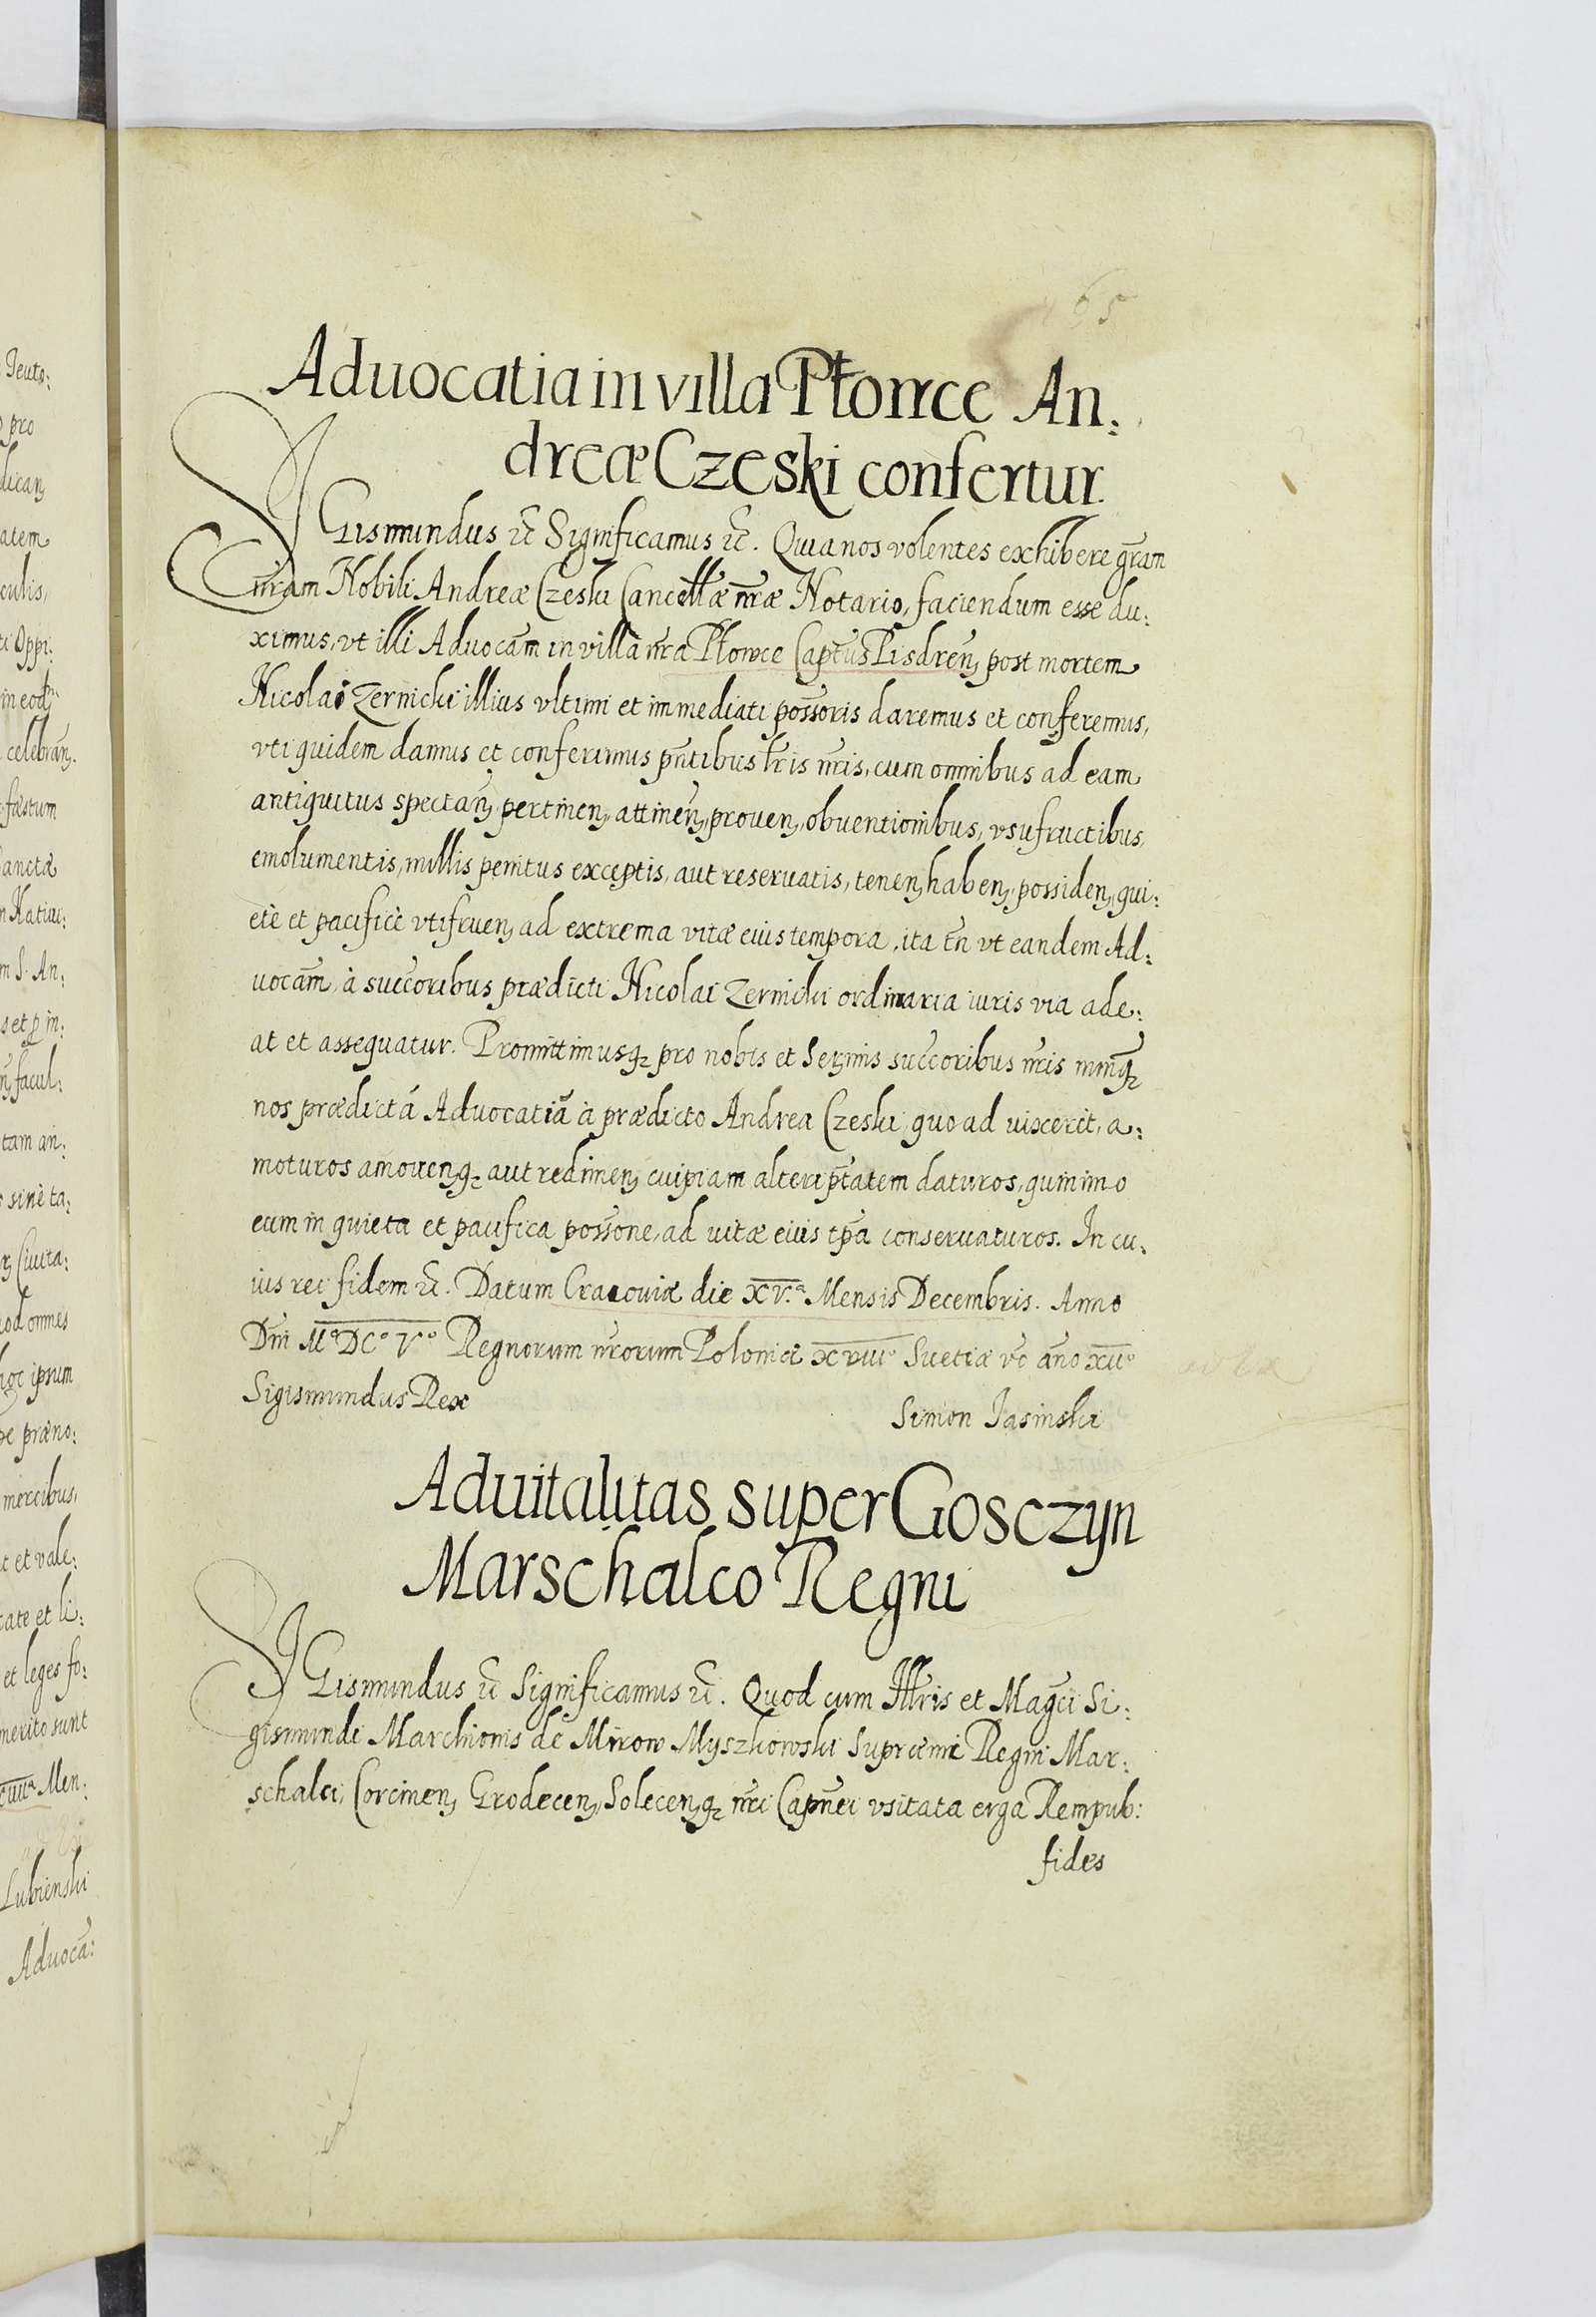 65
Aduocatia in villa Płowce An:
dreæ Czeski confertur.
SIGismundus etc̃ Significamus etc̃. Quia nos volentes exhibere gr̃am
nr̃am Nobili Andreæ Czeski Cancell̃æ nr̃æ Notario, faciendum esse du:
ximus, vt illi Aduocãm in villa nr̃a Płowce Captũs Pisdreñ, post mortem
Nicolai Zernicki illius vltimi et immediati posso̴ris daremus et conferemus,
vti quidem damus et conferimus pñtibus lr̃is nr̃is, cum omnibus ad eam
antiquitus spectañ, pertineñ, attineñ, proueñ, obuentionibus, vsufructibus,
emolumentis, nullis penitus exceptis, aut reseruatis, teneñ, habeñ, possideñ, qui:
etè et pacificè vtifrueñ, ad extrema vitæ eius tempora, ita tñ vt eandem Ad:
uocãm, à succ̃oribus prædicti Nicolai Zernicki ordinaria iuris via ade:
at et assequatur. Promittimusqꝫ pro nobis et Serm̃is succ̃oribus nr̃is nunq̃
nos prædictã Aduocatiã à prædicto Andrea Czeski, quo ad uixerit, a:
moturos amoueñqꝫ aut redimeñ, cuipiam alteri pt̃atem daturos, quinimo
eum in quieta et pacifica poss̃one, ad uitæ eius tp̃a conseruaturos. In cu:
ius rei fidem etc̃. Datum Cracouiæ die XV.ª Mensis Decembris. Anno
Dñi Mº DCº Vº Regnorum nr̃orum Poloniæ XVIIIº Suetiæ v̊o ãno XIIº
Sigismundus Rex
Simon Jasinski
Aduitalitas super Gosczyn
Marschalco Regni
SIGismundus etc̃ Significamus etc̃. Quod cum Illr̃is et Magc̃i Si:
gismundi Marchionis de Mirow Myszkowski Supræmi Regni Mar:
schalci, Corcineñ, Grodeceñ, Soleceñqꝫ nr̃i Capñei vsitata erga Rempub:
fides